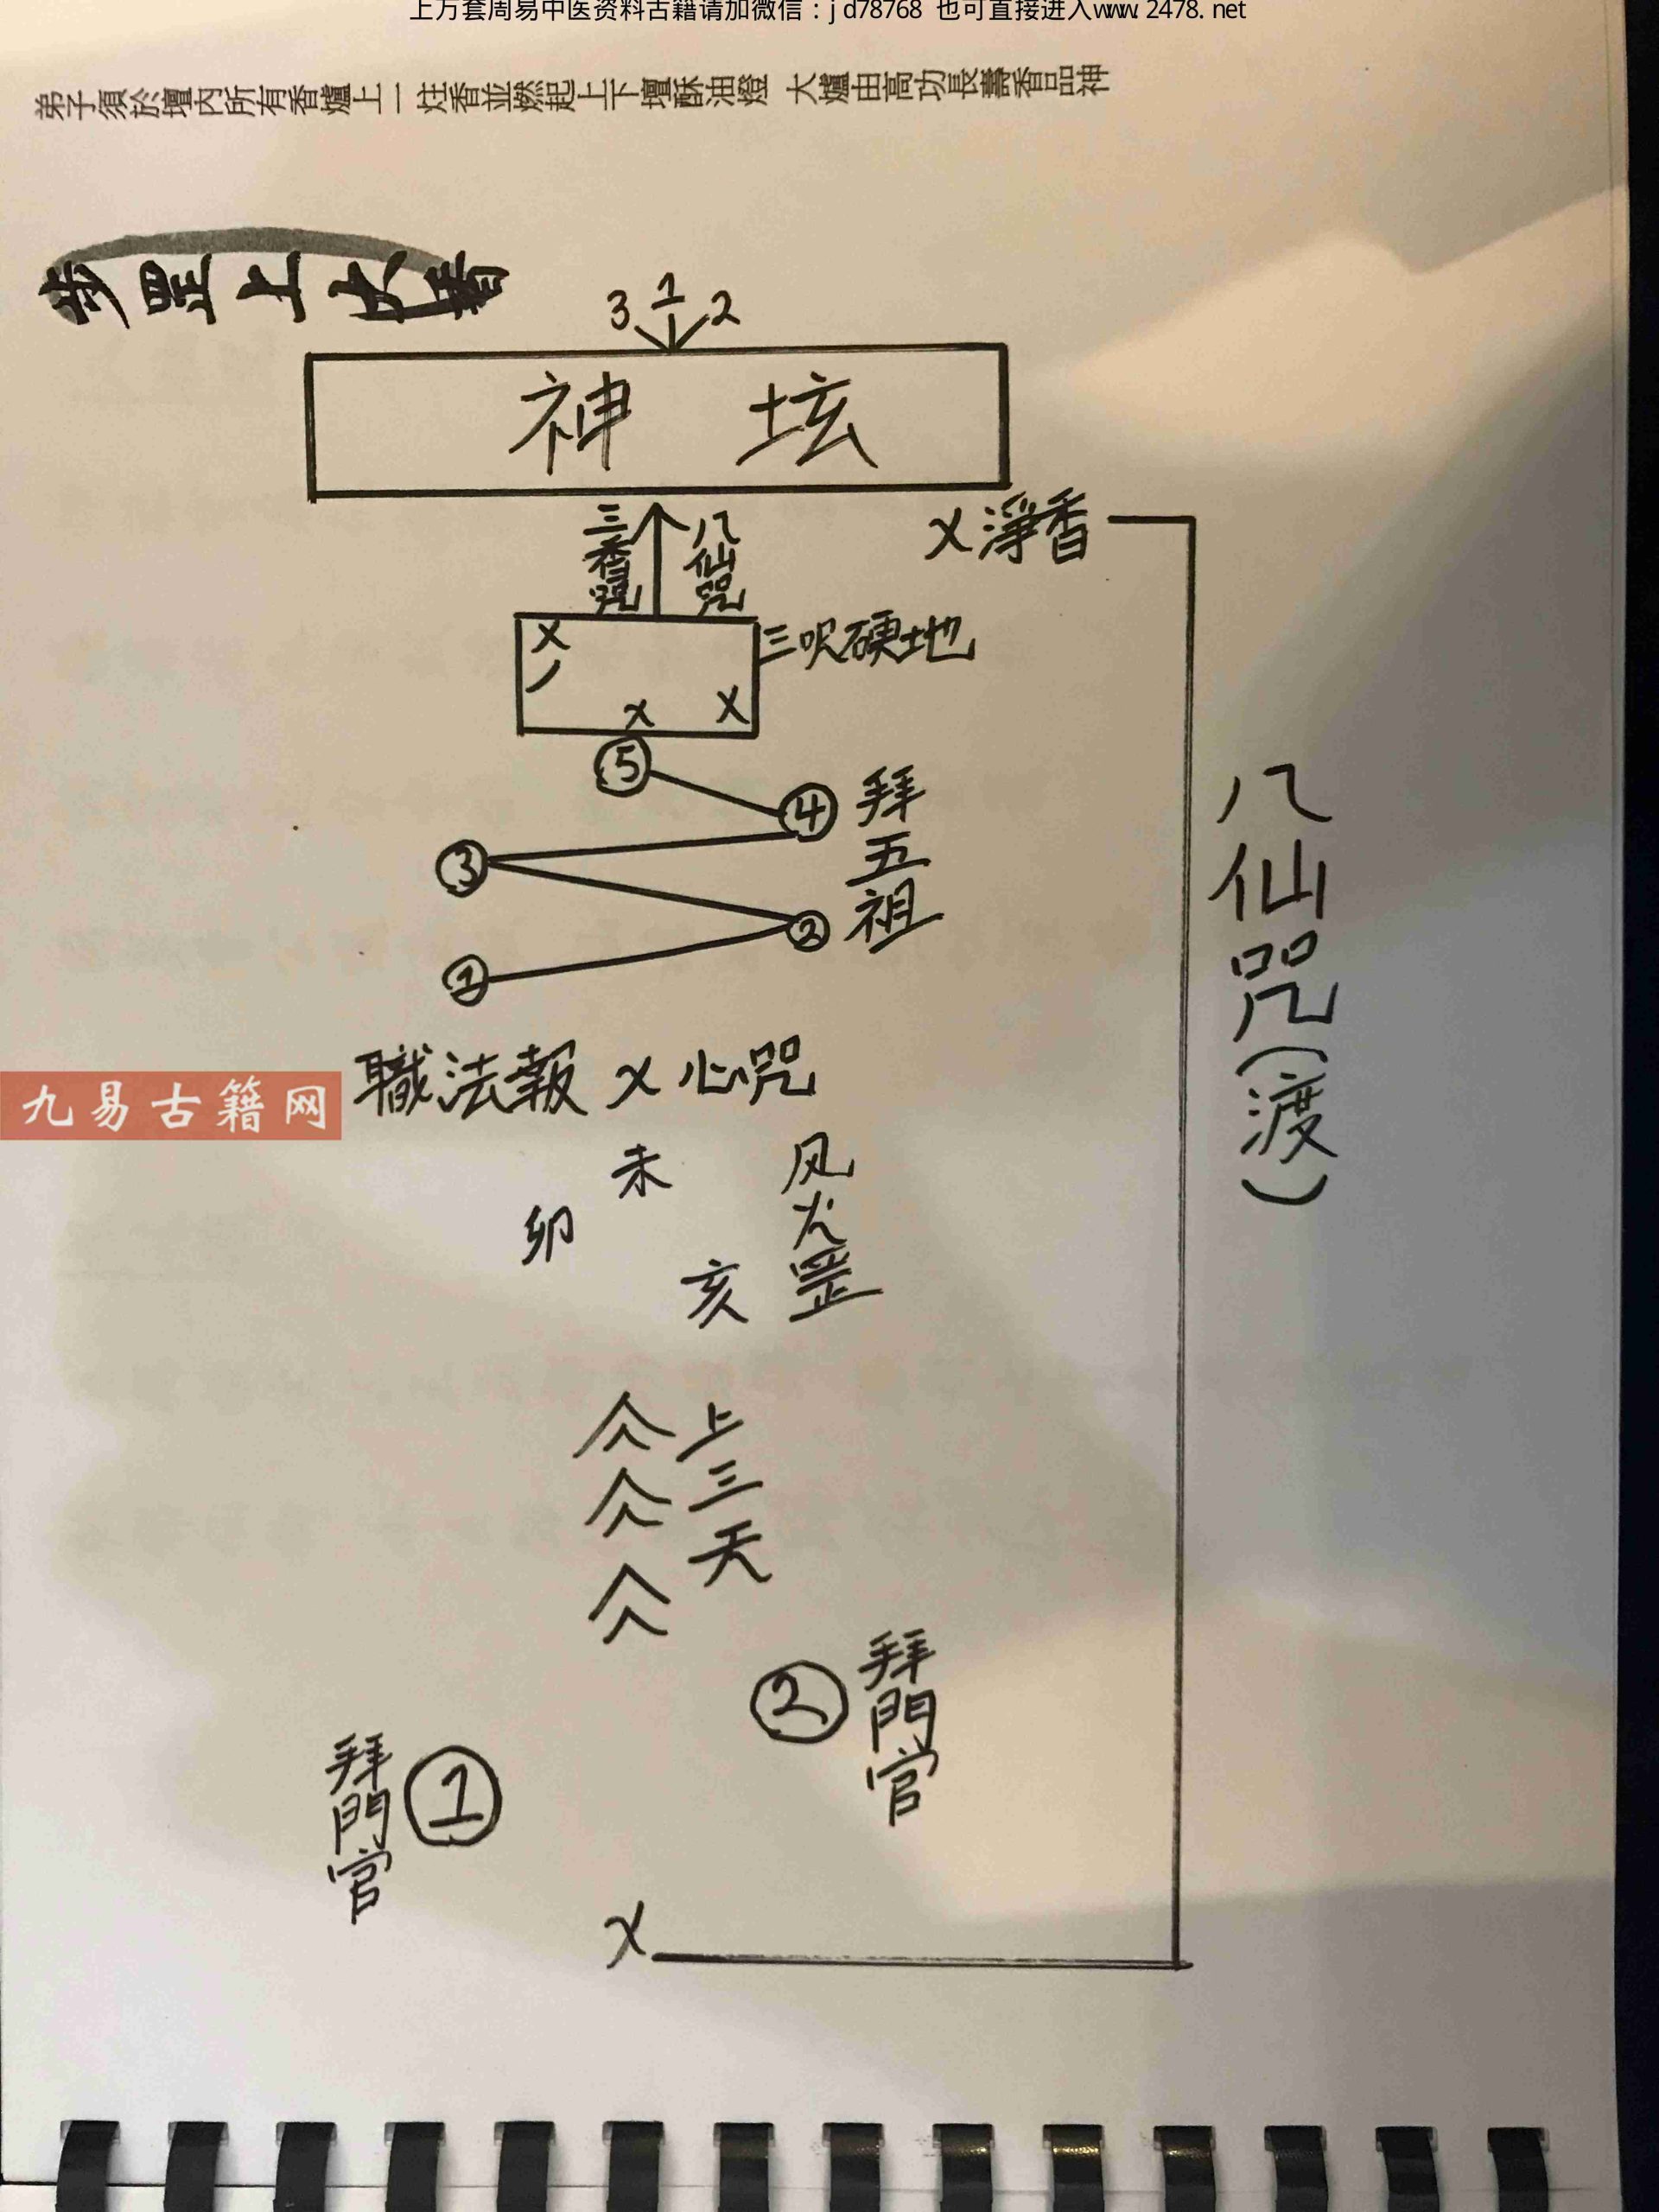 上万套周易中医资料古籍请加微信：jd78768 也可直接进入www.2478.net
弟子須於壇內所有香爐上一炷香並燃起上下壇酥油燈 大爐由高功長壽香品神
步罡上大香
3 1 2
神 坛
三香咒
八仙咒
X 淨香
X
X X
三呎硬地
⑤
④
拜五祖
③
②
①
八仙咒(渡)
九易古籍网
職法報 X 心咒
未
卯
亥
风火罡
上三天
② 拜門官
拜門官 ①
X